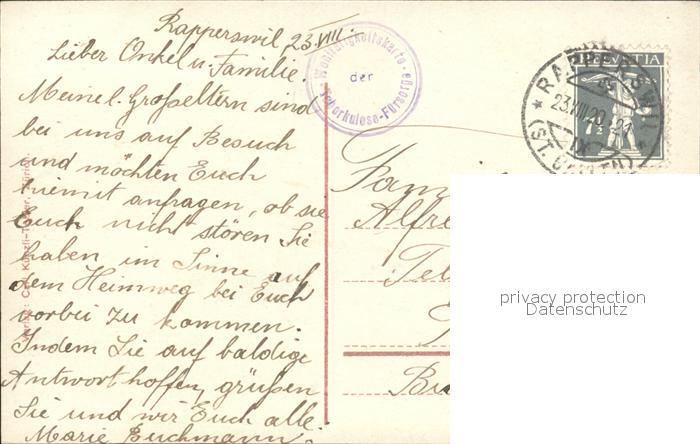 Rapperswil 23. VIII.
Lieber Onkel u. Familie.
Meine l. Großeltern sind
bei uns auf Besuch
und möchten Euch
hiemit anfragen, ob sie
Euch nicht stören. Sie
haben im Sinne auf
dem Heimweg bei Euch
vorbei zu kommen.
Indem Sie auf baldige
Antwort hoffen, grüßen
Sie und wir Euch alle.
Marie Buchmann.
Wohltätigkeitskarte
der
Tuberkulose-Fürsorge
HELVETIA
7½
RAPPERSWIL
23.VIII.20
(ST. GALLEN)
Fam
Alfre
Tel
Bu
privacy protection
Datenschutz
Verlag: Carl Künzli-Tobler, Zürich.